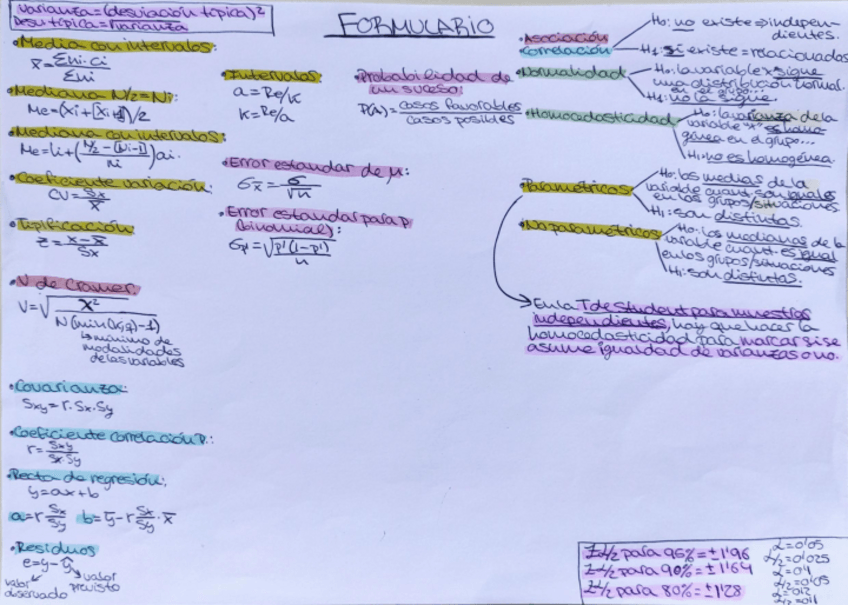 Varianza=(desviación típica)²
Desv típica=√varianza
FORMULARIO
•Media con intervalos:
x̄=Σni·ci/Σni
•Mediana N/2=Ni:
Me=(Xi+[Xi+1])/2
•Mediana con intervalos:
Me=Li+((N/2-[Ni-1])/ni)ai.
•Coeficiente variación:
CV=Sx/x̄
•Tipificación
z=(x-x̄)/Sx
•V de Cramer
V=√(X²/(N(min(k,q)-1)))
↳mínimo de
modalidades
de las variables
•Covarianza:
Sxy=r·Sx·Sy
•Coeficiente correlación P.:
r=Sxy/(Sx·Sy)
•Recta de regresión:
y=ax+b
a=r Sx/Sy b=ȳ-r Sx/Sy·x̄
•Residuos
e=y-ŷ
valor observado
valor previsto
•Intervalos
a=Re/K
K=Re/a
•Error estandar de μ:
σx̄=σ/√n
•Error estandar para p
(binomial):
σp'=√(p'(1-p')/n)
•Probabilidad de
un suceso:
P(A)=casos favorables/casos posibles
•Asociación
•Correlación
H₀: no existe⇒indepen-
dientes.
H₁: sí existe=relacionados
•Normalidad
H₀: la variable x sigue
una distribución normal.
en el grupo...
H₁: no la sigue.
•Homocedasticidad
H₀: la varianza de la
variable "x" es homo
génea en el grupo...
H₁: no es homogénea.
•Paramétricos
H₀: las medias de la
variable cuant. son iguales
en los grupos/situaciones
H₁: son distintas.
•No paramétricos
H₀: las medianas de la
variable cuant. es igual
en los grupos/situaciones
H₁: son distintas.
→En la T de Student para muestras
independientes, hay que hacer la
homocedasticidad para marcar si se
asume igualdad de varianzas o no.
Zα/2 para 95%=±1'96
Zα/2 para 90%=±1'64
Zα/2 para 80%=±1'28
α=0'05
α/2=0'025
α=0'1
α/2=0'05
α=0'2
α/2=0'1